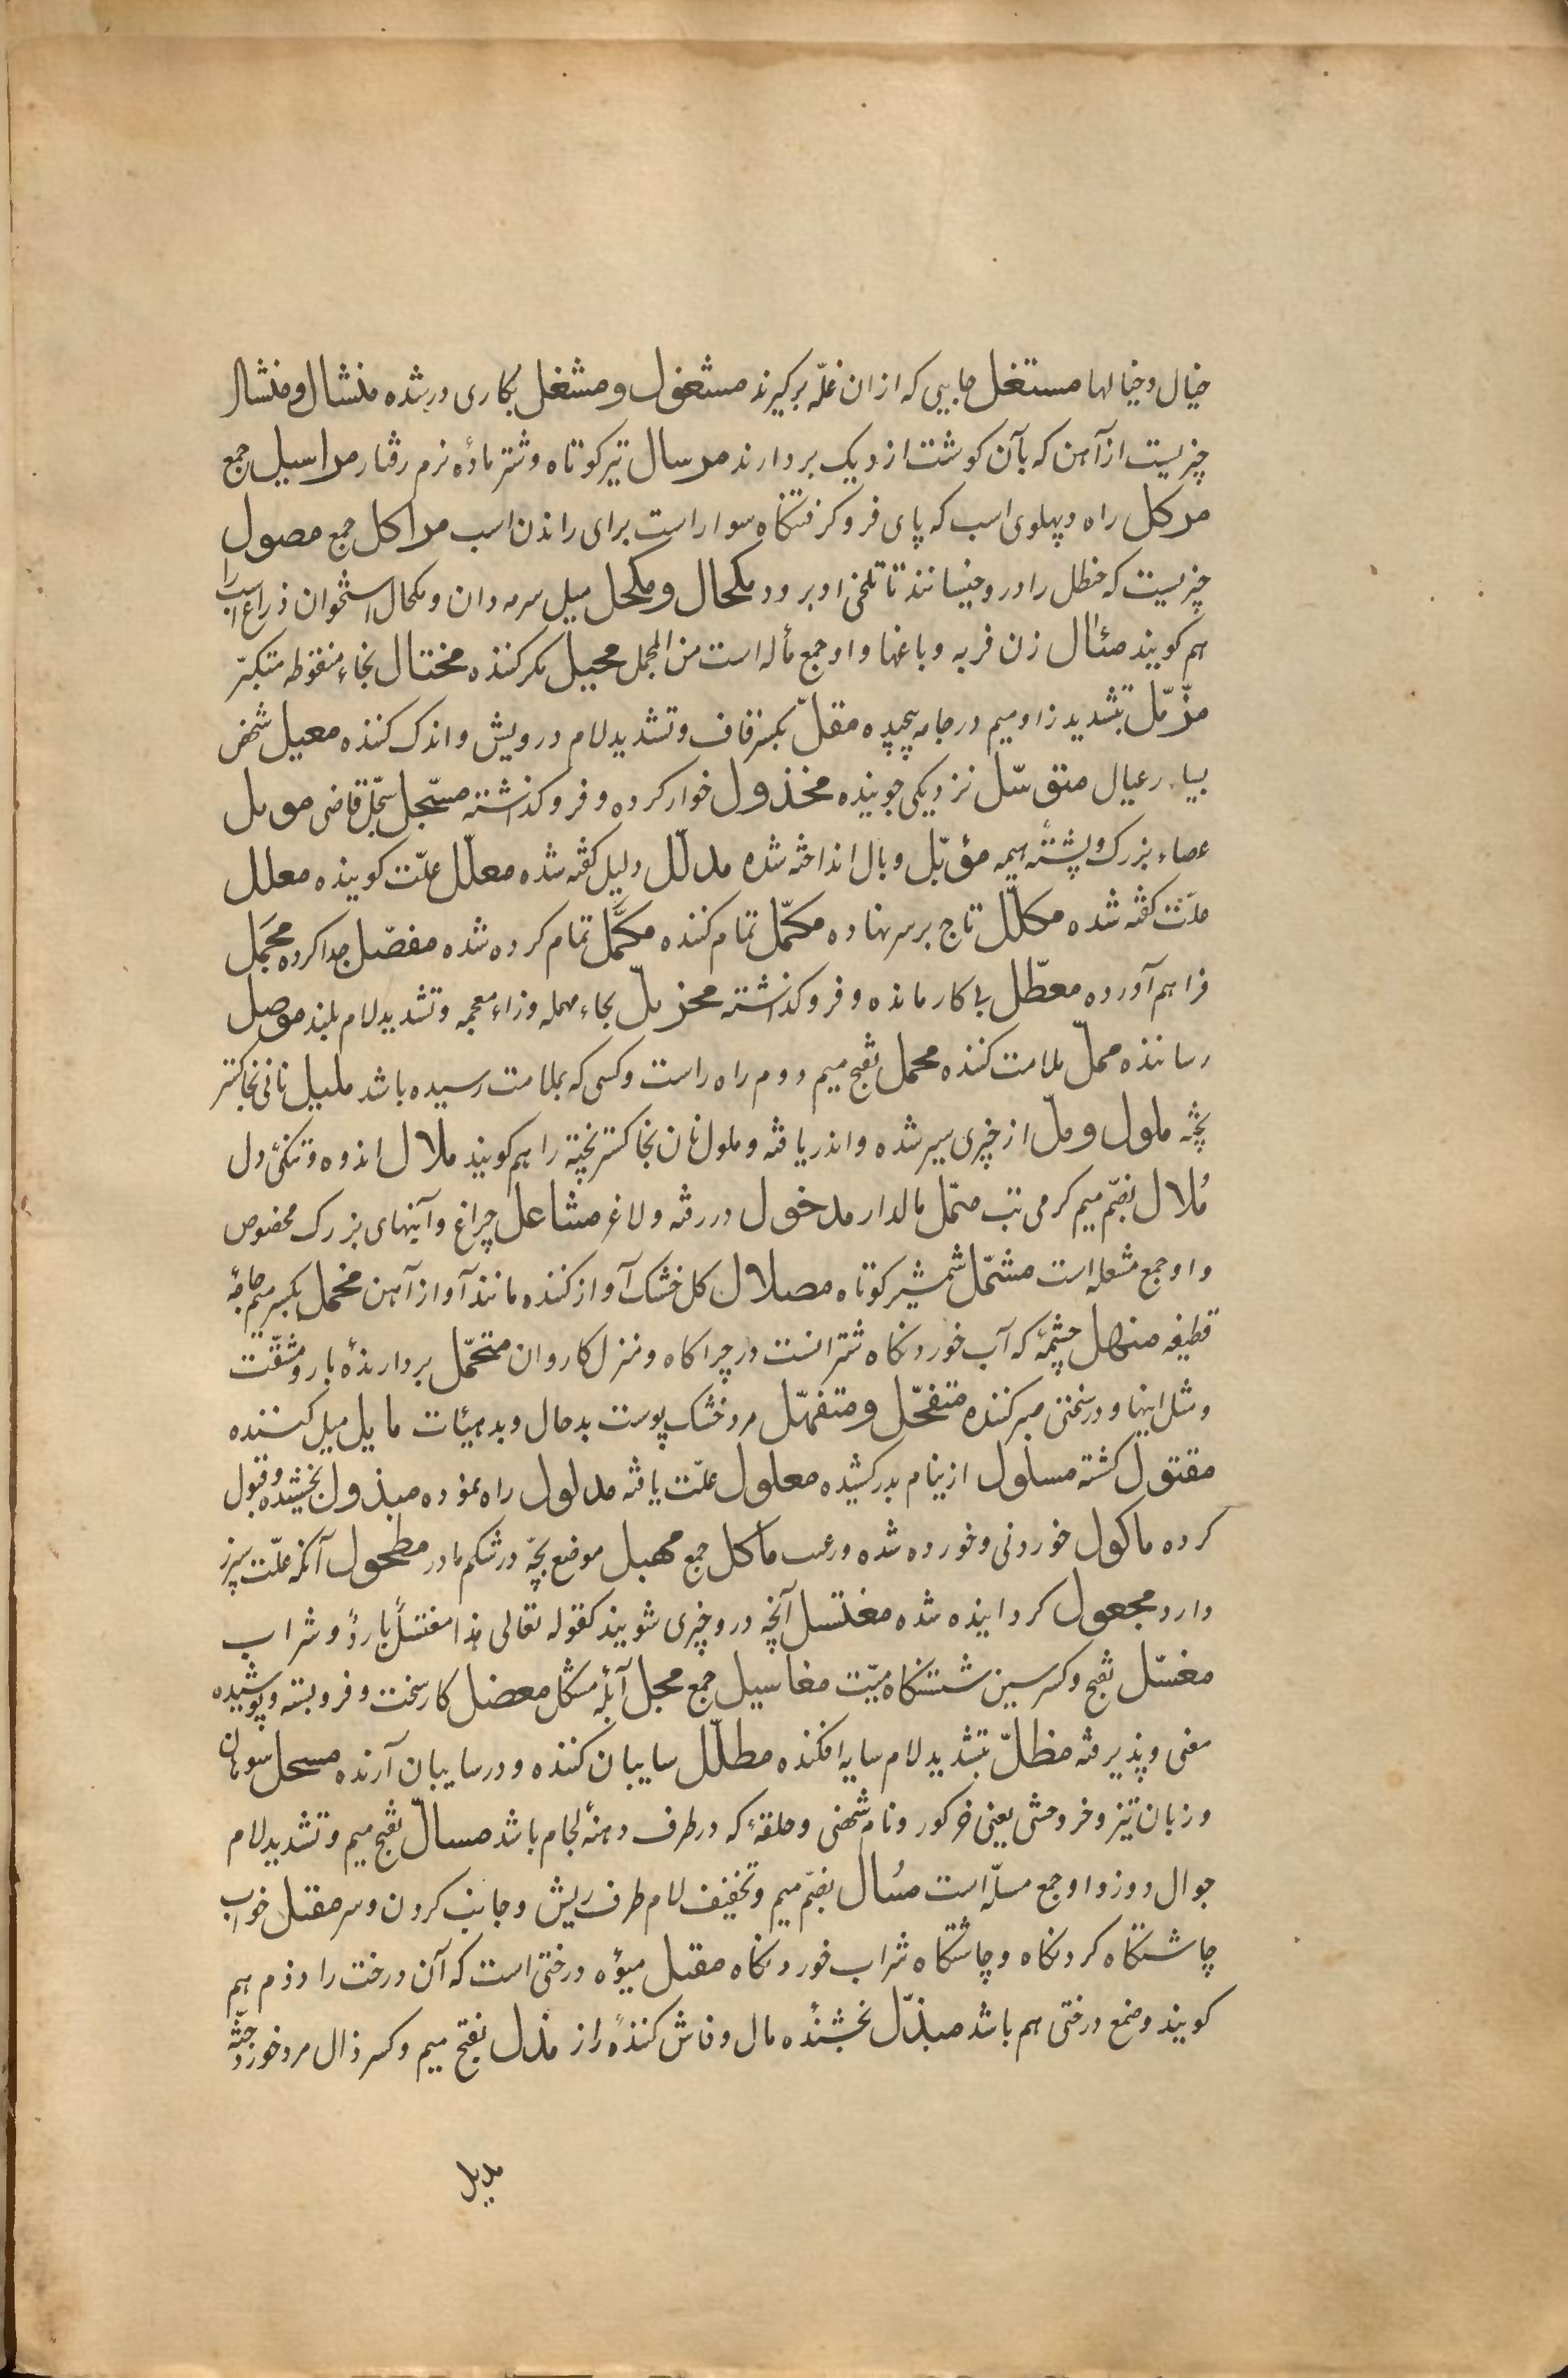 خیال و خیالها مستغل جایی که ازان غلّه برکیرند مشغول و مشغل بکاری در شده منشال و منشل
چیزیست از آهن که بآن کوشت از دیک بردارند مرسال تیر کوتاه و شتر مادۀ نرم رفتار مراسیل جمع
مرکل راه و پهلوی اسب که پای فرو کرفتنکاه سوار است برای راندن اسب مراکل جمع مصول
چیزیست که حنظل را در و خیسانند تا تلخی او برود مکحال و مکحل میل سرمه دان و مکحال استخوان ذراع اسب را
هم کویند مئال زن فربه و باغها و او جمع مأله است من المجمل محیل مکر کننده مختال بخاء منقوطه متکبّر
مزّمّل بتشدید زا و میم در جامه پیچیده مقلّ بکسر قاف و تشدید لام درویش و اندک کننده معیل شخص
بسیار عیال متوسّل نزدیکی جوینده مخذول خوار کرده و فرو کذاشته مسجّل سجّل قاضی موبل
عصاء بزرک و پشتۀ هیمه موبّل وبال انداخته شده مدلّل دلیل کفته شده معلّل علّت کوینده معلل
علّت کفته شده مکلّل تاج بر سر نهاده مکمّل تمام کننده مکمَّل تمام کرده شده مفصّل جدا کرده مجمَل
فراهم آورده معطّل بی کار مانده و فرو کذاشته محزئلّ بحاء مهمله و زاء معجمه و تشدید لام بلند موصل
رساننده محمل ملامت کننده محمل بفتح میم دوم راه راست و کسی که بملامت رسیده باشد ملیل نانی بخاکستر
پخته ملول و ملّ از چیزی سیر شده و اندر یافته و ملول نان بخاکستر پخته را هم کویند ملال اندوه و تنکیّ دل
مُلال بضمّ میم کرمی تب متمّل مالدار مدخول در رفته و لاغر مشاعل چراغ و آینهای بزرک مخصوص
و او جمع مشعله است مشمّل شمشیر کوتاه مصلال کل خشک آواز کننده مانند آواز آهن مخمل بکسر میم جامۀ
قطیفه منهل چشمۀ که آب خوردنکاه شترانست در چراکاه و منزل کاروان متحمّل بردارندۀ بار و مشقّت
و مثل اینها و در سختی صبر کننده متفحّل و متفهّل مرد خشک پوست بد حال و بد هیئات مایل میل کننده
مقتول کشته مسلول از نیام بدر کشیده معلول علّت یافته مدلول راه نموده مبذول بخشیده و قبول
کرده ماکول خوردنی و خورده شده و رعب مآکل جمع مهبل موضع بچّه در شکم مادر مطحول آنکه علّت سپرز
دارد مجعول کردانیده شده مغتسل آنچه در و چیزی شویند کقوله تعالی هذا مغتسلٌ باردٌ و شراب
مغسّل بفتح و کسر سین شستنکاه میّت مغاسیل جمع مجل آبله مشکل معضل کار سخت و فرو بسته و پوشیده
معنی و پذیرفته مظلّ بتشدید لام سایه افکنده مظلّل سایبان کننده و در سایبان آرنده مسحل سوهان
و زبان تیز و خر وحشی یعنی خر کور و نام شخصی و حلقۀ که در طرف دهنۀ لجام باشد مسالّ بفتح میم و تشدید لام
جوال دوز و او جمع مسلّه است مسُال بضمّ میم و تخفیف لام طرف ریش و جانب کردن و سر مقتل خواب
چاشتکاه کردنکاه و چاشتکاه شراب خوردنکاه مقبل میوۀ درختی است که آن درخت را دوم هم
کویند و صمغ درختی هم باشد مبذّل بخشندۀ مال و فاش کنندۀ راز مذل بفتح میم و کسر ذال مرد خورد جثّه
مدیل